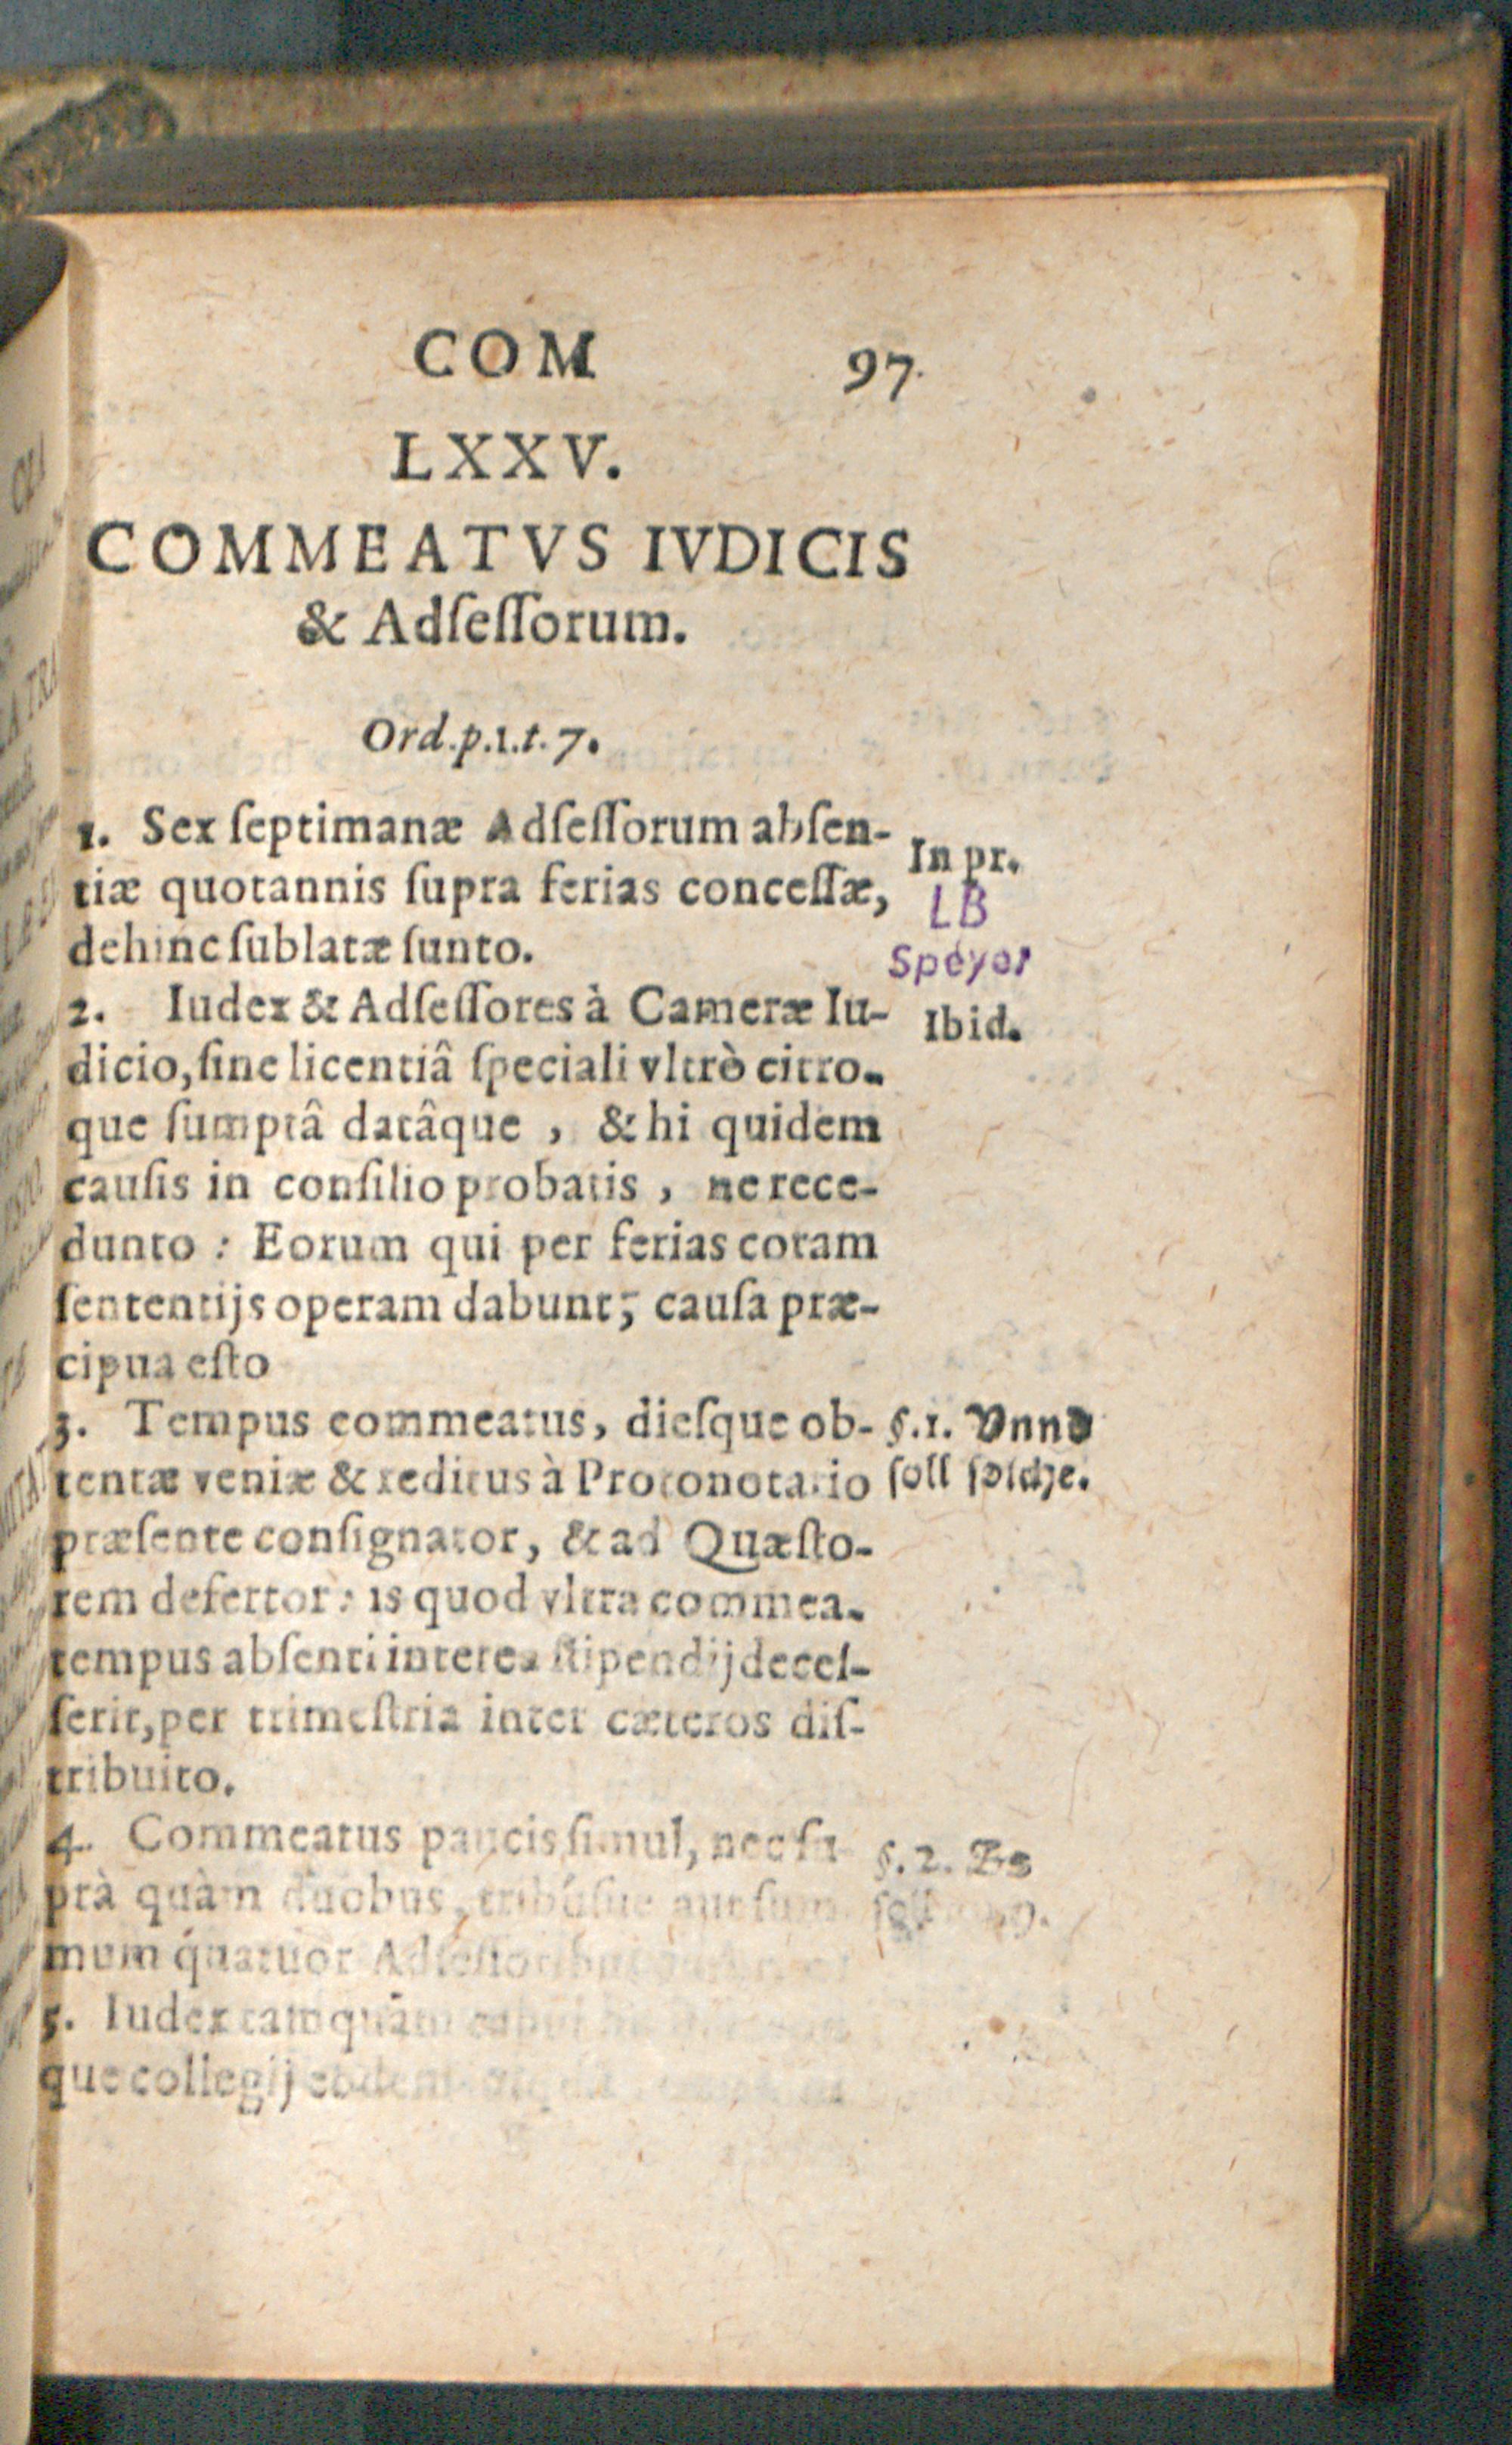 COM 97.
LXXV.
COMMEATVS IVDICIS
& Adſeſſorum.
Ord.p.1.t.7.
1. Sex ſeptimanæ Adſeſſorum abſen-
In pr.
tiæ quotannis ſupra ferias conceſſæ,
LB
dehinc ſublatæ ſunto.
Speyer
2. Iudex & Adſeſſores à Cameræ Iu-
Ibid.
dicio, ſine licentiâ ſpeciali vltrò citro-
que ſumptâ datâque, & hi quidem
cauſis in conſilio probatis, ne rece-
dunto : Eorum qui per ferias coram
ſententijs operam dabunt; cauſa præ-
cipua eſto
3. Tempus commeatus, dieſque ob-
§.1. Vnnd
tentæ veniæ & reditus à Protonotario
ſoll ſolche.
præſente conſignator, & ad Quæſto-
rem defertor: is quod vltra commea-
tempus abſenti interea ſtipendij deceſ-
ſerit, per trimeſtria inter cæteros diſ-
tribuito.
4. Commeatus paucis ſimul, nec ſu
§.2. Es
prà quàm duobus, tribúſue aut ſum
ſoll
mum quatuor Adſeſſoribus
5. Iudex tamquam caput
que collegij eodem